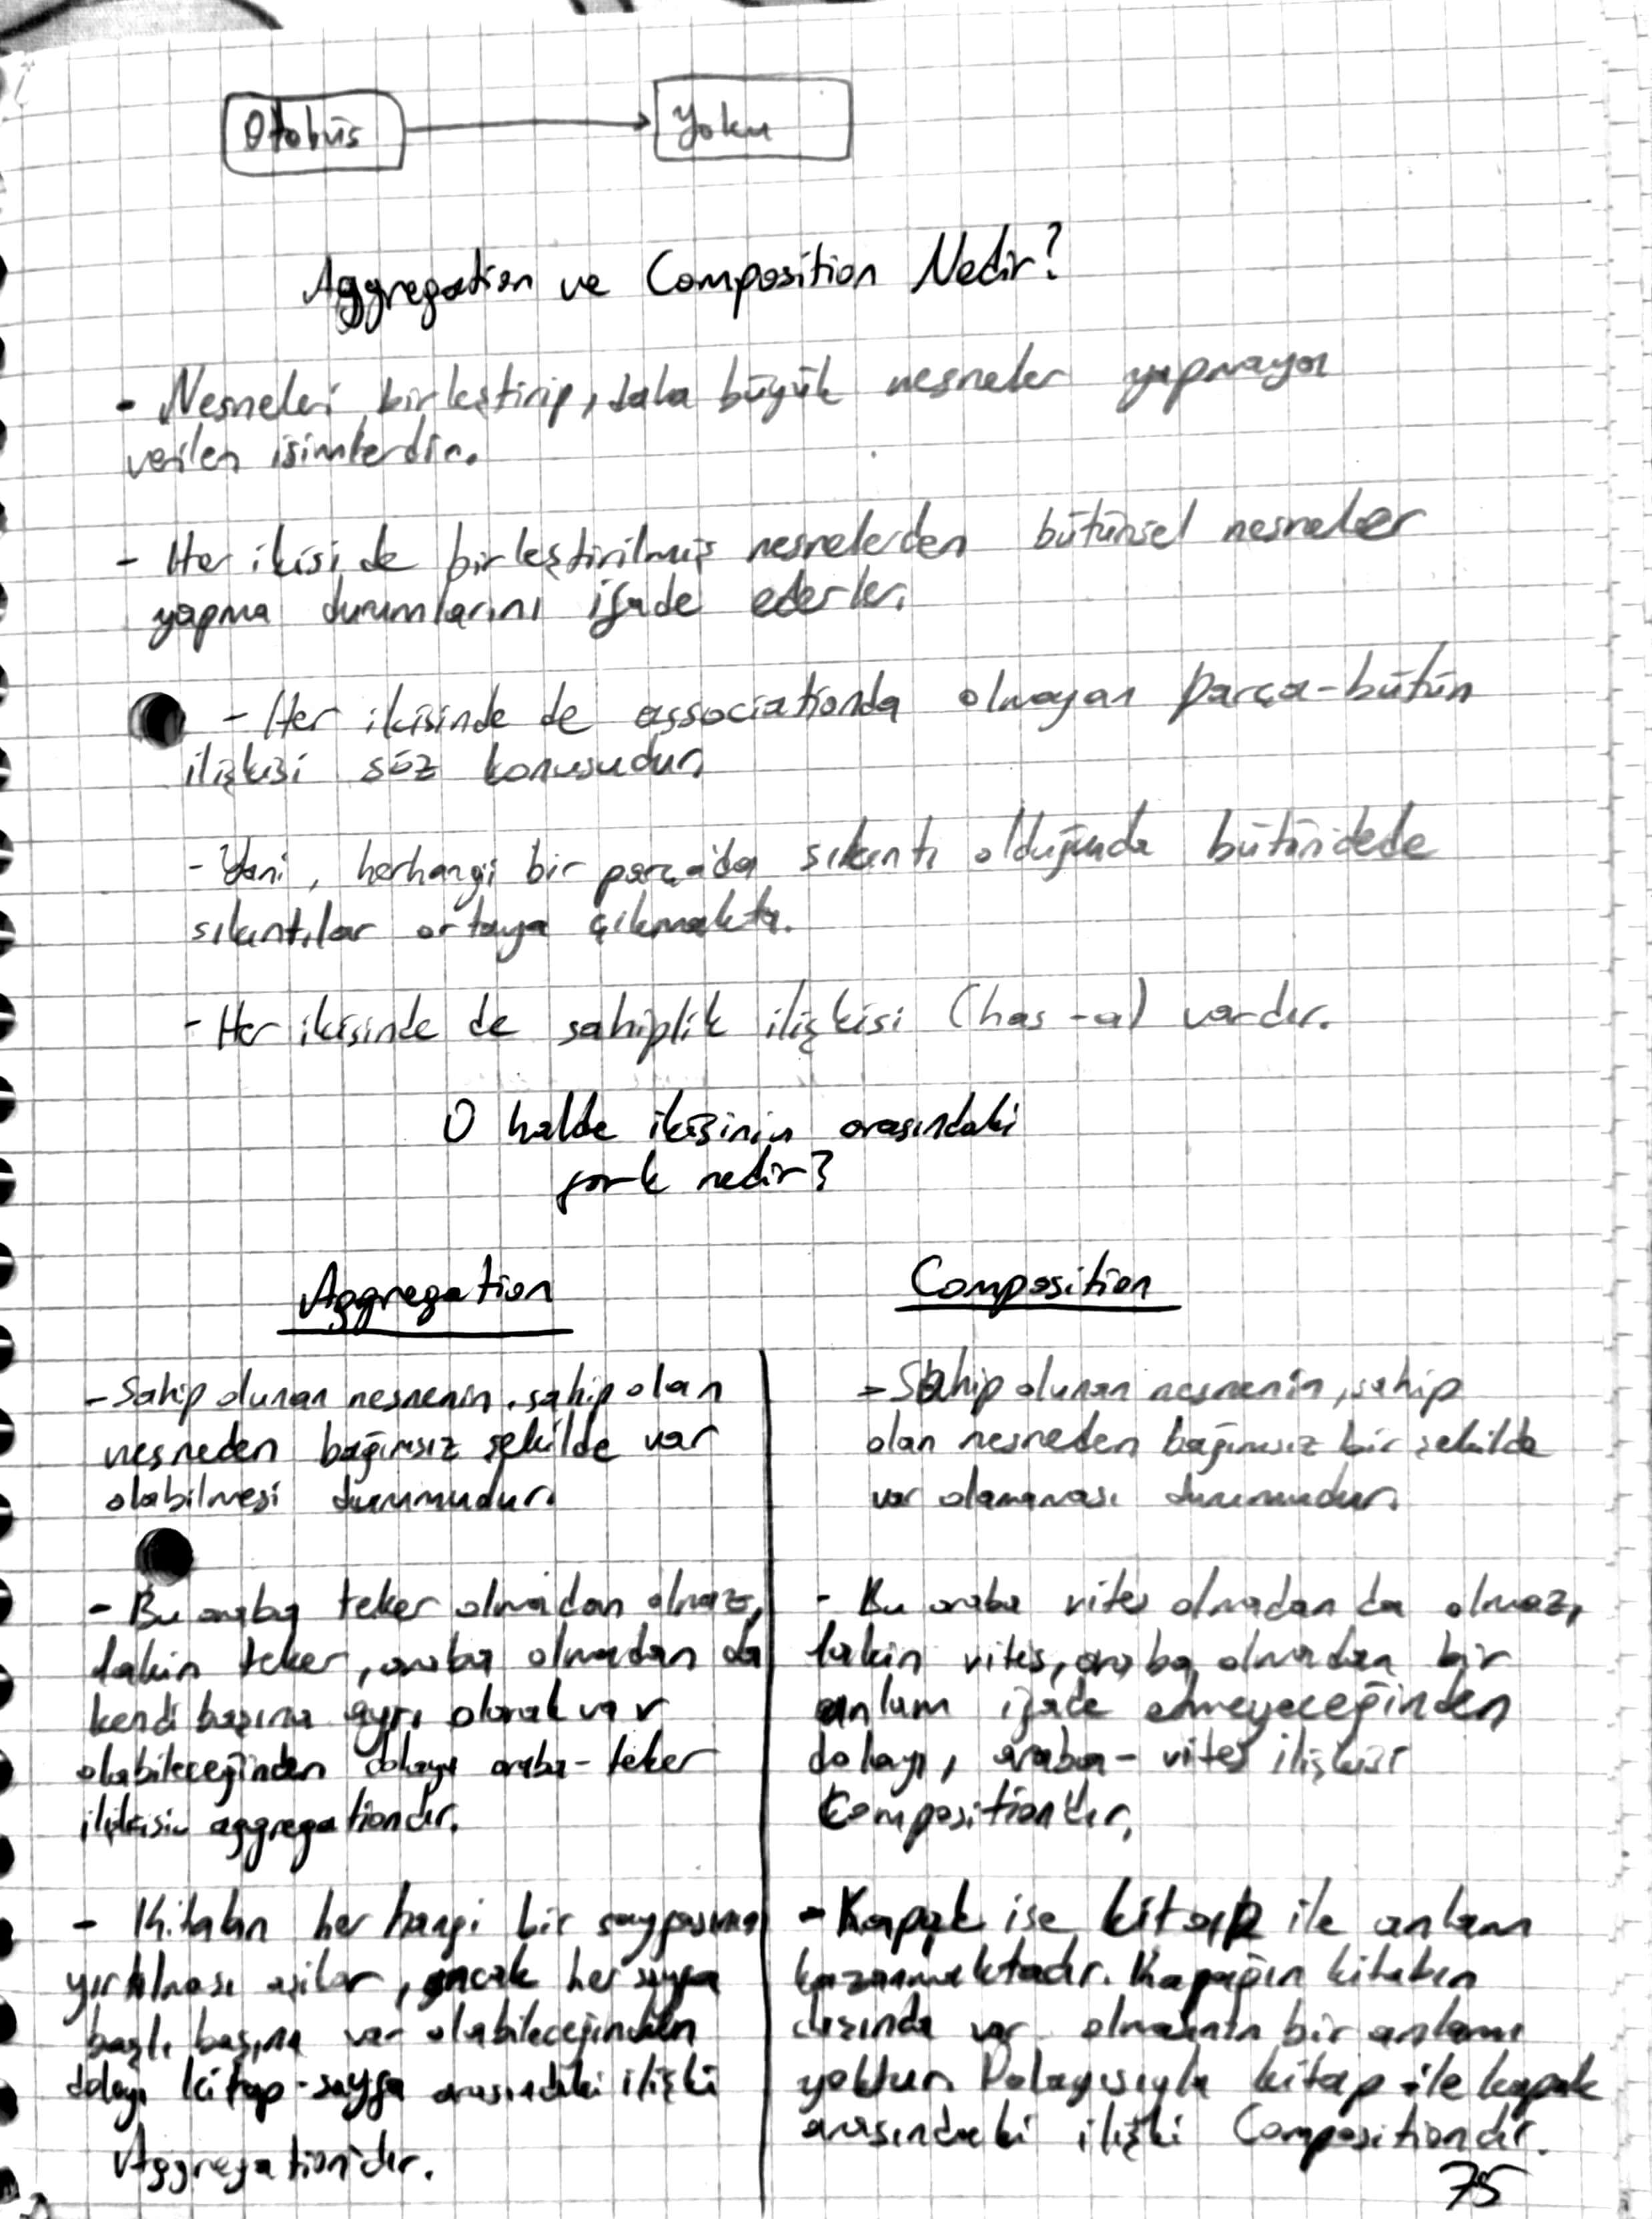 Otobüs
Yolcu
Aggregation ve Composition Nedir?
- Nesneleri birleştirip, daha büyük nesneler yapmaya
verilen isimlerdir.
- Her ikisi de birleştirilmiş nesnelerden bütünsel nesneler
yapma durumlarını ifade ederler.
- Her ikisinde de associationda olmayan parça-bütün
ilişkisi söz konusudur.
- Yani, herhangi bir parçada sıkıntı olduğunda bütündede
sıkıntılar ortaya çıkmakta.
- Her ikisinde de sahiplik ilişkisi (has-a) vardır.
O halde ikisinin arasındaki
fark nedir?
Aggregation
- Sahip olunan nesnenin, sahip olan
nesneden bağımsız şekilde var
olabilmesi durumudur.
- Bu araba teker olmadan olmaz,
lakin teker, araba olmadan da
kendi başına ayrı olarak var
olabileceğinden dolayı araba-teker
ilişkisi aggregationdır.
- Kitabın her hangi bir sayfasının
yırtılması, ancak her sayfa
başlı başına var olabileceğinden
dolayı kitap-sayfa arasındaki ilişki
Aggregation'dır.
Composition
- Sahip olunan nesnenin, sahip
olan nesneden bağımsız bir şekilde
var olamaması durumudur.
- Bu araba vites olmadan da olmaz,
lakin vites, araba olmadan bir
anlam ifade etmeyeceğinden
dolayı, araba-vites ilişkisi
Composition'dır.
- Kapak ise kitap ile anlam
kazanmaktadır. Kapağın kitabın
dışında var olmanın bir anlamı
yoktur. Dolayısıyla kitap ile kapak
arasındaki ilişki Compositiondır.
75